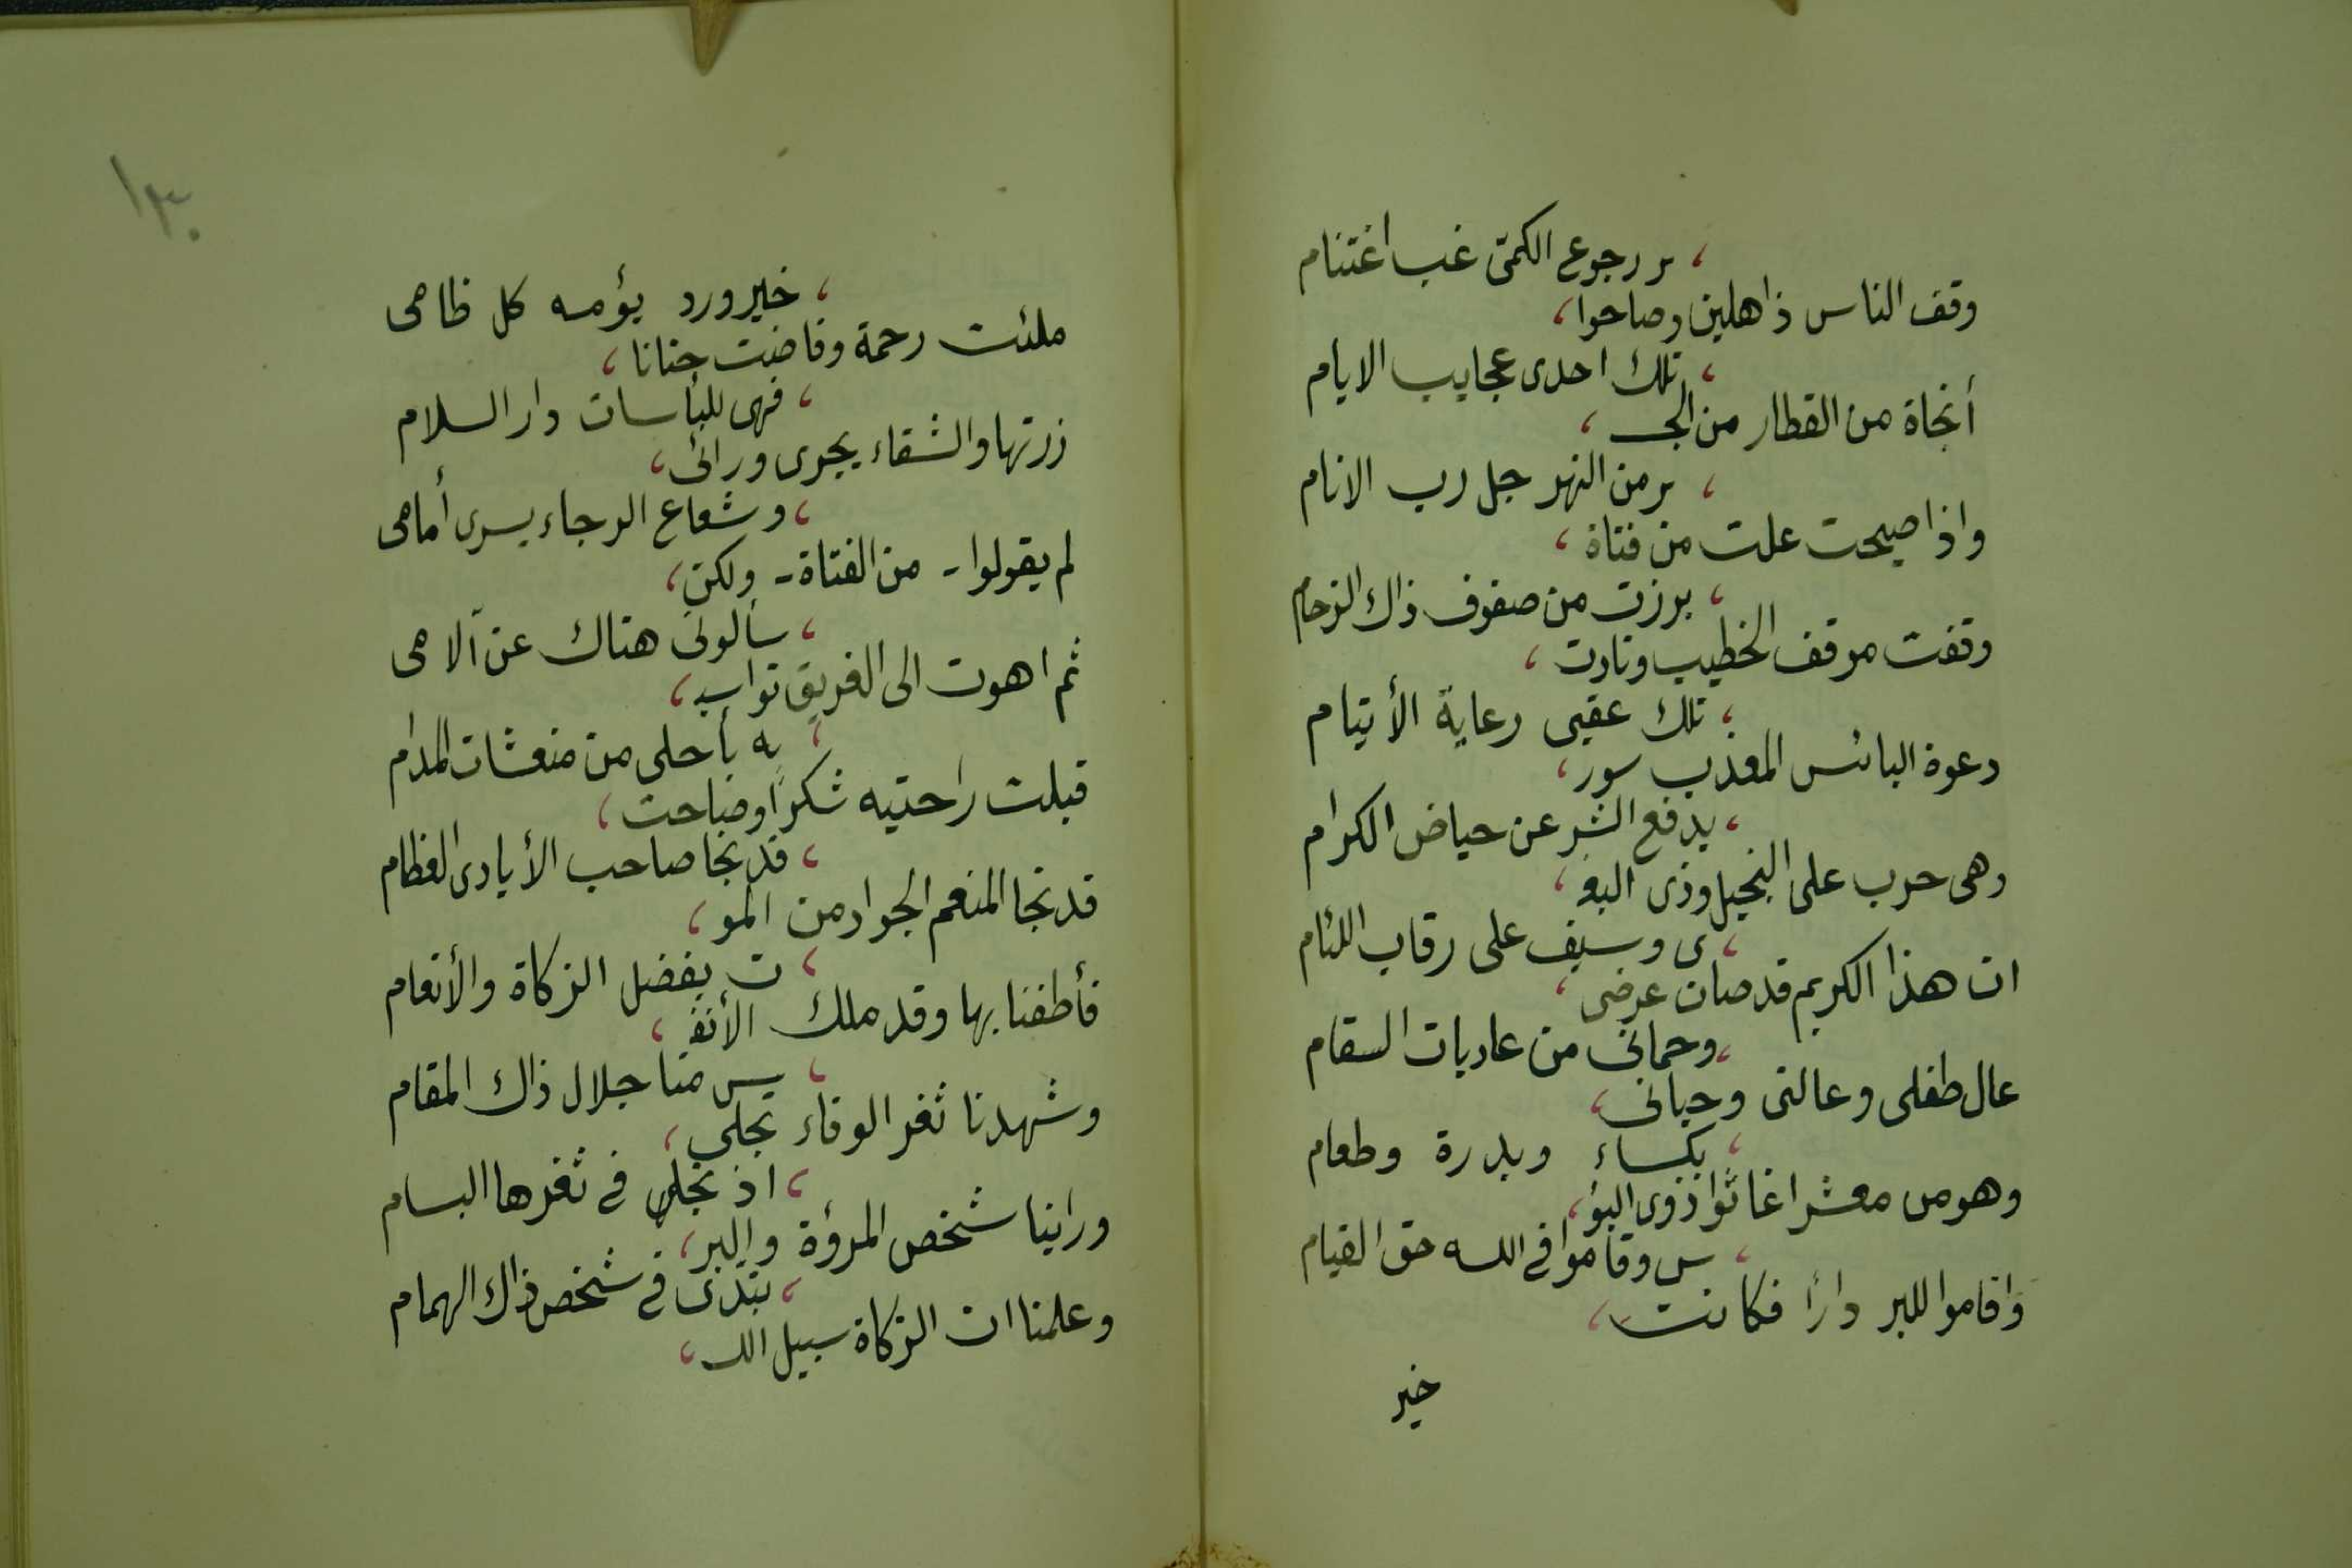 ر رجوع الكمىّ غب اغتنام
وقف الناس ذاهلين وصاحوا،
، تلك احدى عجايب الايام
أنجاة من القطار من الجسـ،
، ـر من النهر جل رب الانام
واذا صيحت علت من فتاة،
، برزت من صفوف ذاك الزحام
وقفت موقف الخطيب ونادت،
، تلك عقبى رعاية الأيتام
دعوة البائس المعذب سور،
، يدفع الشر عن حياض الكرام
وهى حرب على البخيل وذى البغـ،
، ـى وسيف على رقاب اللئام
ان هذا الكريم قد صان عرضى،
، وحمانى من عاديات السقام
عال طفلى وعالنى وحبانى،
، بكساء وبدرة وطعام
وهو من معشر اغاثوا ذوى البؤ،
، س وقاموا فى الله حق القيام
واقاموا للبر دارًا فكانت،
خير
١٣٠
، خير ورد يؤمه كل ظامى
ملئت رحمة وفاضت حنانا،
، فهى للبأسات دار السلام
زرتها والشقاء يجرى ورائى،
، وشعاع الرجاء يسرى أمامى
لم يقولوا - من الفتاة - ولكن،
، سألونى هناك عن آلامى
ثم اهوت الى الغريق تواسيـ،
، ـه بأحلى من منعشات المدام
قبلت راحتيه شكرًا وصاحت،
، قد نجا صاحب الأيادى العظام
قد نجا المنعم الجواد من المو،
، ت بفضل الزكاة والأنعام
فأطفنا بها وقد ملك الأنفـ،
، ـس منا جلال ذاك المقام
وشهدنا ثغر الوفاء تجلى،
، اذ تجلى فى ثغرها البسام
وراينا شخص المروٴة والبر،
، تبدّى فى شخص ذاك الهمام
وعلمنا ان الزكاة سبيل اللـ،